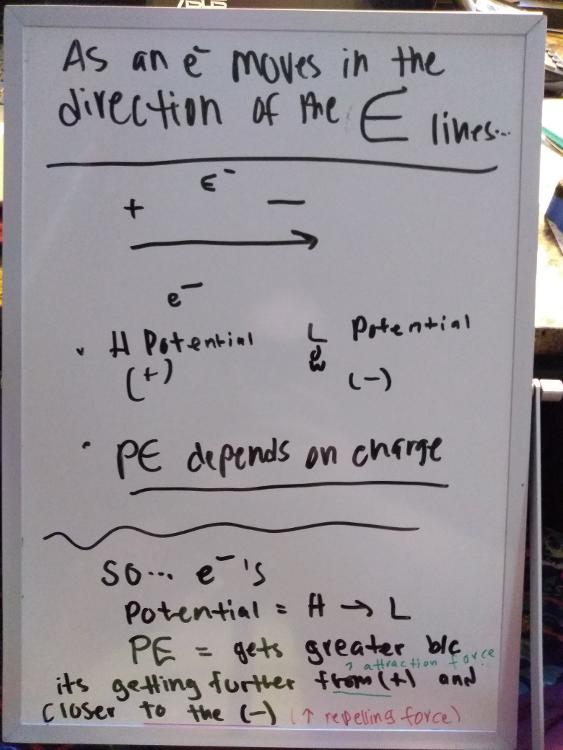 ASUS
As an e⁻ moves in the
direction of the E lines...
e⁻
+ −
e⁻
H Potential L Potential
(+) (−)
PE depends on charge
SO... e⁻'s
Potential = H → L
PE = gets greater b/c
↑ attraction force
its getting further from (+) and
closer to the (−) (↑ repelling force)